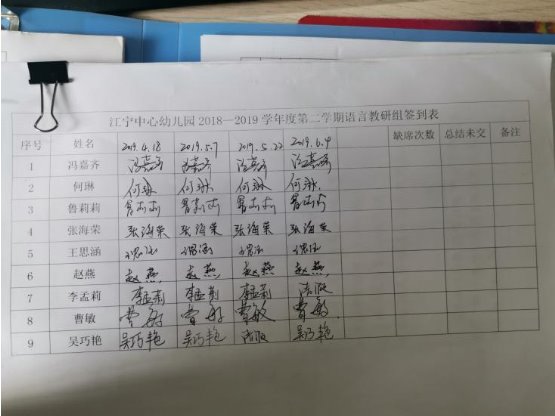 江宁中心幼儿园2018—2019学年度第二学期语言教研组签到表
序号 姓名 2019.4.18 2019.5.7 2019.5.22 2019.6.4 缺席次数 总结未交 备注
1 冯嘉齐 冯嘉齐 冯嘉齐 冯嘉齐 冯嘉齐
2 何琳 何琳 何琳 何琳 何琳
3 鲁莉莉 鲁莉莉 鲁莉莉 鲁莉莉 鲁莉莉
4 张海荣 张海荣 张海荣 张海荣 张海荣
5 王思涵
6 赵燕 赵燕 赵燕 赵燕 赵燕
7 李孟莉 李孟莉 李孟莉 李孟莉 请假
8 曹敏 曹敏 曹敏 曹敏 曹敏
9 吴巧艳 吴巧艳 吴巧艳 请假 吴巧艳